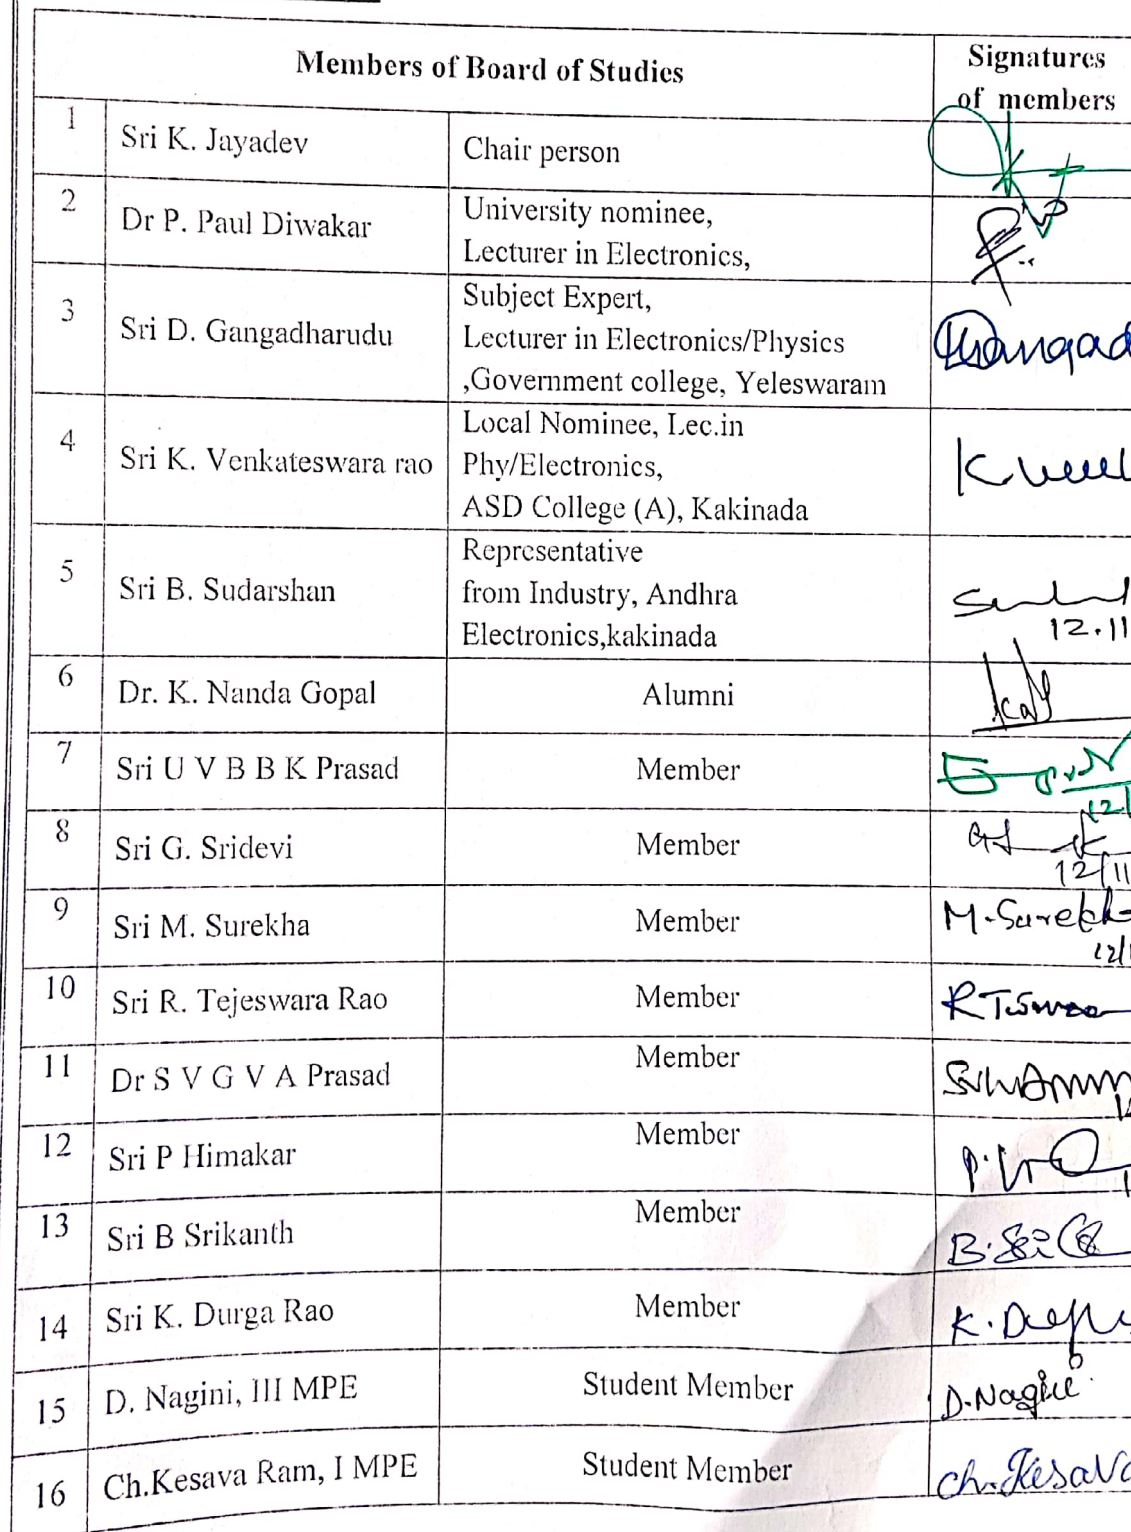 Members of Board of Studies
Signatures
of members
1
Sri K. Jayadev
Chair person
2
Dr P. Paul Diwakar
University nominee,
Lecturer in Electronics,
3
Sri D. Gangadharudu
Subject Expert,
Lecturer in Electronics/Physics
,Government college, Yeleswaram
4
Sri K. Venkateswara rao
Local Nominee, Lec.in
Phy/Electronics,
ASD College (A), Kakinada
5
Sri B. Sudarshan
Representative
from Industry, Andhra
Electronics,kakinada
12.11
6
Dr. K. Nanda Gopal
Alumni
7
Sri U V B B K Prasad
Member
8
Sri G. Sridevi
Member
12/11
9
Sri M. Surekha
Member
M.Surekha
10
Sri R. Tejeswara Rao
Member
11
Dr S V G V A Prasad
Member
12
Sri P Himakar
Member
13
Sri B Srikanth
Member
14
Sri K. Durga Rao
Member
15
D. Nagini, III MPE
Student Member
D.Nagini
16
Ch.Kesava Ram, I MPE
Student Member
Ch.Kesava